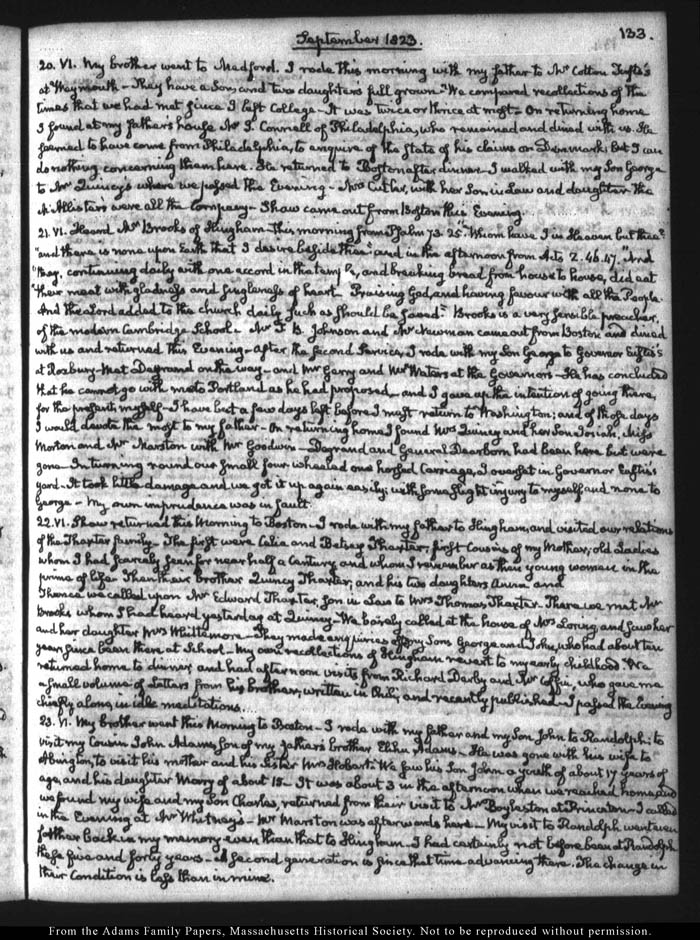 September 1823.
133.
20. VI. My brother went to Medford. I rode this morning with my father to Mr Cotton Tufts's
at Weymouth – They have a Son, and two daughters full grown. We compared recollections of the
times that we had met since I left College – It was twice or thrice at most – On returning home
I found at my father's house Mr J. Connell of Philadelphia, who remained and dined with us. He
seemed to have come from Philadelphia, to enquire of the State of his claims on Denmark; but I can
do nothing concerning them here. He returned to Boston after dinner – I walked with my Son George
to Mr Quincy's where we passed the Evening – Mrs Cutler, with her Son in Law and daughter the
McAllisters were all the Company – Shaw came out from Boston this Evening.
21. VI. Heard Mr Brooks of Hingham – this morning from Psalm 73. 25. "Whom have I in Heaven but thee?
"and there is none upon Earth that I desire beside thee" and in the afternoon from Acts 2. 46. 47. "And
"they, continuing daily with one accord in the temple, and breaking bread from house to house, did eat
"their meat with gladness and singleness of heart – Praising God, and having favour with all the People.
And the Lord added to the church daily such as should be saved." Brooks is a very sensible preacher,
of the modern Cambridge School – Mr J. B. Johnson and Mr Newman came out from Boston and dined
with us and returned this Evening – After the second Service, I rode with my Son George to Governor Eustis's
at Roxbury – Met Degrand on the way – and Mr Gerry and Mr Waters at the Governor's – He has concluded
that he cannot go with me to Portland as he had proposed – and I gave up the intention of going there,
for the present myself – I have but a few days left before I must return to Washington; and of those days
I would devote the most to my father – On returning home I found Mrs Quincy and her Son Josiah, Miss
Morton and Mr Marston with Mr Goodwin – Degrand and General Dearborn had been here but were
gone – In turning round our small four wheeled one horsed Carriage, I overset in Governor Eustis's
yard – It took little damage and we got it up again easily; with some slight injury to myself and none to
George – My own imprudence was in fault.
22. VI. Shaw returned this Morning to Boston – I rode with my father to Hingham, and visited our relations
of the Thaxter family – The first were Celia and Betsey Thaxter, first Cousins of my Mother; old Ladies
whom I had scarcely seen for near half a Century and whom I remember as then young women in the
prime of life – Then their brother Quincy Thaxter; and his two daughters Anna and
Thence we called upon Mr Edward Thaxter, Son in Law to Mrs Thomas Thaxter – There we met Mr
Brooks whom I had heard yesterday at Quincy – We barely called at the house of Mrs Loring, and saw her
and her daughter Mrs Whittemore – They made enquiries of my Sons George and John, who had about ten
years since been there at School – My own recollections of Hingham revert to my early childhood. We
returned home to dinner and had afternoon visits from Richard Derby and Mr Coffin, who gave me
a small volume of Letters from his brother, written in Chili, and recently published – I passed the Evening
chiefly alone, in idle meditations.
23. VI. My brother went this Morning to Boston – I rode with my father and my Son John to Randolph; to
visit my Cousin John Adams, Son of my father's brother Elihu Adams – He was gone with his wife to
Abington, to visit his mother and his Sister Mrs Hobart. We saw his Son John a youth of about 17 years of
age, and his daughter Mary of about 15 – It was about 3 in the afternoon when we reached home, and
we found my wife and my Son Charles, returned from their visit to Mr Boylston at Princeton – I called
in the Evening at Mr Whitney's – Mr Marston was afterwards here – My visit to Randolph went even
farther back in my memory even than that to Hingham – I had certainly not before been at Randolph
these five and forty years – A second generation is since that time advancing there. The change in
their Condition is less than in mine.
From the Adams Family Papers, Massachusetts Historical Society. Not to be reproduced without permission.